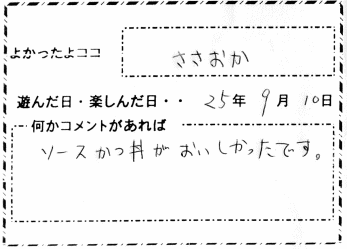 よかったよココ ささおか
遊んだ日・楽しんだ日・・ 25年 9月 10日
何かコメントがあれば
ソースかつ丼が おいしかったです。